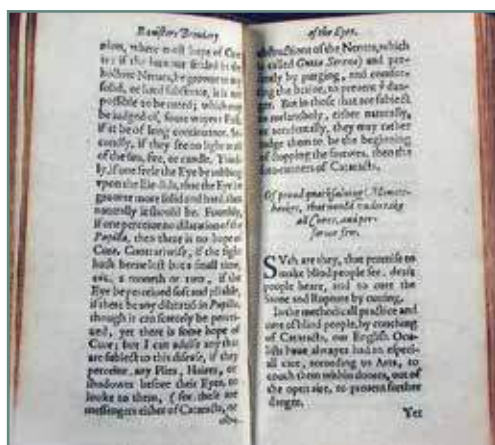 Banisters Breviary
sion, where most hope of Cure
is: if the humour setled in the
hollow Nerves, be growne to any
solid, or hard substance, it is not
possible to be cured; which may
be judged of, some wayes: First,
if it be of long continuance. Secondly,
if they see no light at all
of the sun, fire, or candle. Thirdly,
if one feele the Eye by rubbing
upon the Eie-lids, that the Eye is
growne more solid and hard, then
naturally it should be. Fourthly,
if one perceive no dilatation of the
Pupilla, then there is no hope of
Cure. Contrariwise, if the sight
hath beene lost but a small time,
as, a moneth or two, if the
Eye be perceived soft and pliable,
if there be any dilatatiō in Pupilla,
though it can scarcely be perceived,
yet there is some hope of
Cure; but I can advise any that
are subject to this disease, if they
perceive any Flies, Haires, or
shadowes before their Eyes, to
looke to them, (for, these are
messengers either of Cataracts, or
of the Eyes.
obstructions of the Nerves, which
is called Gutta Serena) and
by purging, and
the braine, to prevent ye danger.
But in those that are subject
to melancholy, either naturally,
or accidentally, they may rather
judge them to be the beginning
of stopping the
fore-runners of Cataracts.
Of proud quacksalving Mountebankes,
that would undertake
all Cures, and performe
few.
SUch are they, that promise to
make blind people see, deafe
people heare, and to cure the
Stone and Rupture by cutting.
In the methodicall practice and
cure of blind people, by couching
of Cataracts, our English Oculists
have alwayes had an especiall
care, according to Arts, to
couch them within doores, out of
the open aire, to prevent further
danger.
Yet